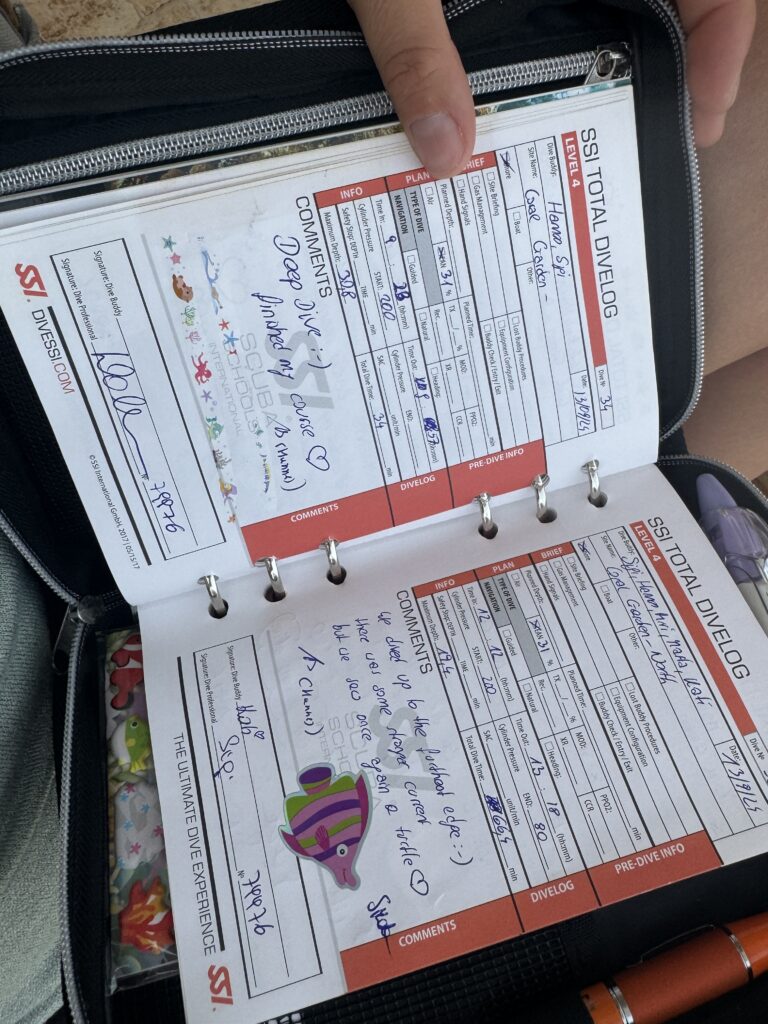 SSI TOTAL DIVELOG
LEVEL 4
Dive № 34
Dive Buddy: Hanno, Sipi
Date: 13/9/25
Site Name: Coral Garden
Shore
Boat
Other:
BRIEF
Site Briefing
Lost Buddy Procedures
Gas Management
Equipment Configuration
Hand Signals
Buddy Check / Entry / Exit
PRE-DIVE INFO
PLAN
Planned Depth:
Planned Time: min
Air
EAN 31 %
TX / %
MOD:
PPO2:
Rec.
XR
CCR
TYPE OF DIVE
NAVIGATION
Guided
Natural
Heading:
INFO
Time In: 9 : (hh:mm)
Time Out: (hh:mm)
Cylinder Pressure START: 200
Cylinder Pressure END:
Safety Stop: DEPTH TIME min
SAC unit/min
Maximum Depth: 30,8
Total Dive Time: 34 min
DIVELOG
COMMENTS
Deep Dive :-)
finished my course ♡
COMMENTS
SSI
SCUBA
SCHOOLS
INTERNATIONAL
Signature: Dive Buddy
Signature: Dive Professional № 79976
SSI DIVESSI.COM
© SSI International GmbH, 2017 | 05/15/17
SSI TOTAL DIVELOG
LEVEL 4
Dive №
Dive Buddy: Sipi, Hanno,
Date: 13/9/25
Site Name: Coral Garden - North
Boat
Other:
BRIEF
Site Briefing
Lost Buddy Procedures
Gas Management
Equipment Configuration
Hand Signals
Buddy Check / Entry / Exit
PRE-DIVE INFO
PLAN
Planned Depth:
Planned Time: min
Air
EAN 31 %
TX / %
MOD:
PPO2:
Rec.
XR
CCR
TYPE OF DIVE
NAVIGATION
Guided
Natural
Heading:
INFO
Time In: 12 : 12 (hh:mm)
Time Out: 13 : 18 (hh:mm)
Cylinder Pressure START: 200
Cylinder Pressure END: 80
Safety Stop: DEPTH TIME min
SAC unit/min
Maximum Depth: 19,4
Total Dive Time: min
DIVELOG
COMMENTS
We dived up to the furthest edge :-)
there was some strong current
but we saw once again a turtle ♡
COMMENTS
Signature: Dive Buddy
Signature: Dive Professional № 79976
THE ULTIMATE DIVE EXPERIENCE SSI